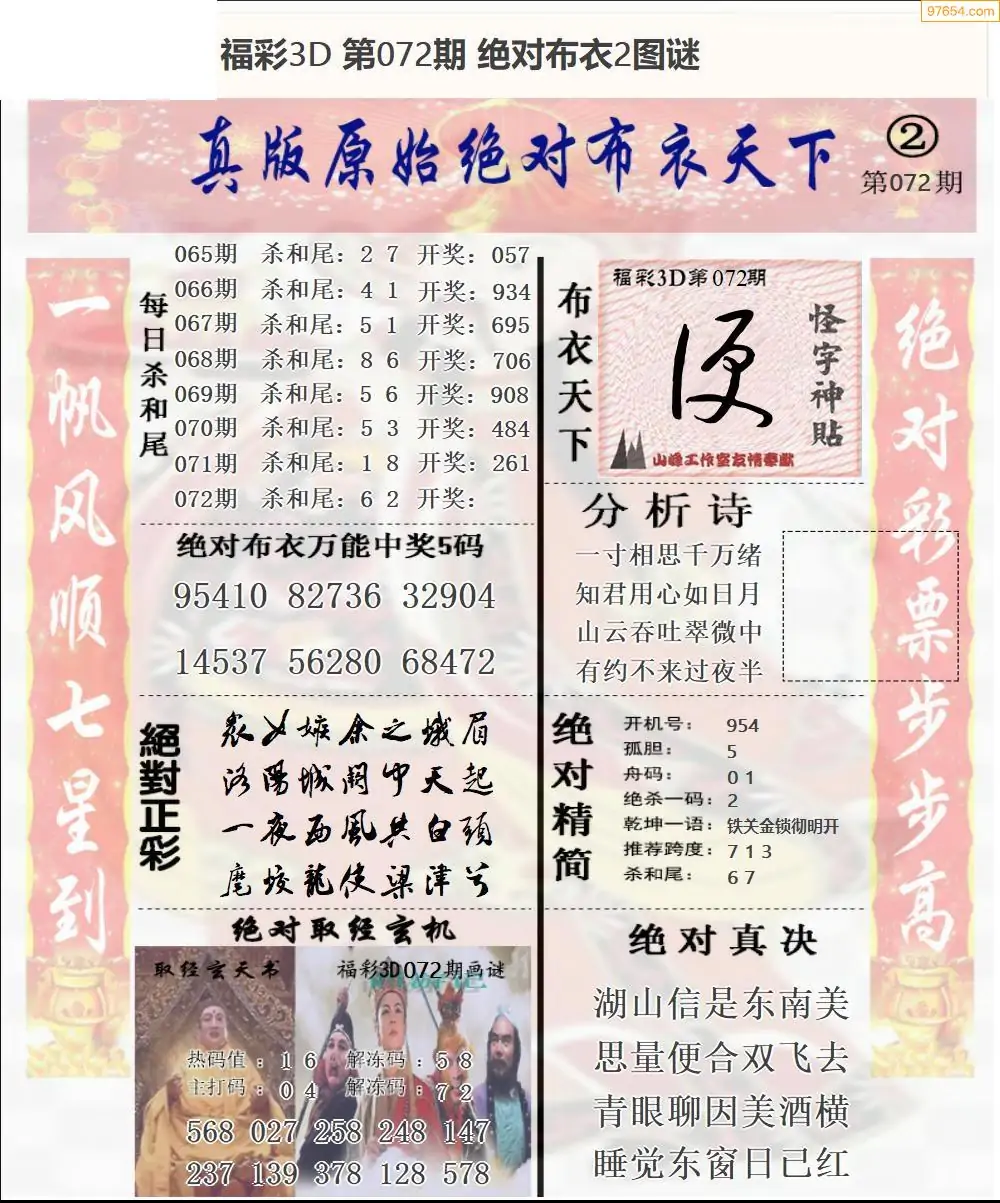 97654.com
福彩3D 第072期 绝对布衣2图谜
真版原始绝对布衣天下
②
第072期
一帆风顺七星到
每日杀和尾
065期 杀和尾：2 7 开奖：057
066期 杀和尾：4 1 开奖：934
067期 杀和尾：5 1 开奖：695
068期 杀和尾：8 6 开奖：706
069期 杀和尾：5 6 开奖：908
070期 杀和尾：5 3 开奖：484
071期 杀和尾：1 8 开奖：261
072期 杀和尾：6 2 开奖：
绝对布衣万能中奖5码
95410 82736 32904
14537 56280 68472
絕對正彩
衆女嫉余之娥眉
洛陽城闕中天起
一夜西風共白頭
麾蛟龍使梁津兮
绝对取经玄机
取经玄天书
福彩3D072期画谜
热码值：1 6 解冻码：5 8
主打码：0 4 解冻码：7 2
568 027 258 248 147
237 139 378 128 578
布衣天下
福彩3D第072期
便
怪字神貼
山峰工作室友情奉献
分析诗
一寸相思千万绪
知君用心如日月
山云吞吐翠微中
有约不来过夜半
绝对精简
开机号：954
孤胆：5
舟码：0 1
绝杀一码：2
乾坤一语：铁关金锁彻明开
推荐跨度：7 1 3
杀和尾：6 7
绝对真决
湖山信是东南美
思量便合双飞去
青眼聊因美酒横
睡觉东窗日己红
绝对彩票步步高